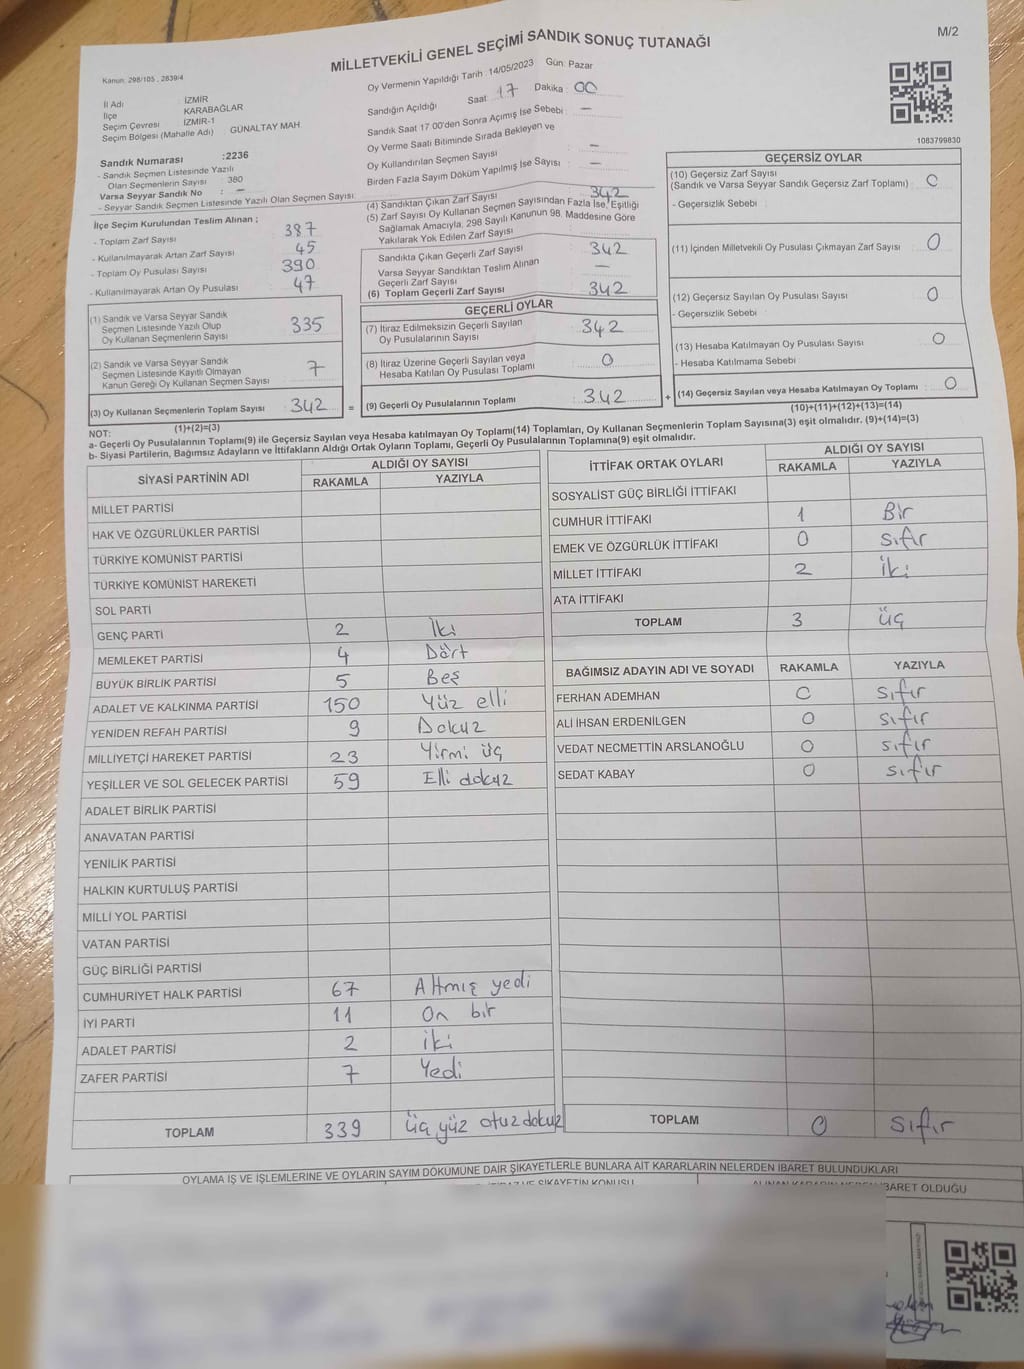 M/2
MİLLETVEKİLİ GENEL SEÇİMİ SANDIK SONUÇ TUTANAĞI
Kanun: 298/105 , 2839/4
İl Adı : İZMİR
İlçe KARABAĞLAR
Seçim Çevresi : İZMİR-1
Seçim Bölgesi (Mahalle Adı) : GÜNALTAY MAH
Oy Vermenin Yapıldığı Tarih : 14/05/2023 Gün: Pazar
Sandığın Açıldığı Saat : 17 Dakika : 00
Sandık Saat 17 00'den Sonra Açımış İse Sebebi : –
Oy Verme Saati Bitiminde Sırada Bekleyen ve
Oy Kullandırılan Seçmen Sayısı : –
Birden Fazla Sayım Döküm Yapılmış İse Sayısı : –
1083799830
Sandık Numarası :2236
- Sandık Seçmen Listesinde Yazılı
Olan Seçmenlerin Sayısı : 380
Varsa Seyyar Sandık No : –
- Seyyar Sandık Seçmen Listesinde Yazılı Olan Seçmen Sayısı :
İlçe Seçim Kurulundan Teslim Alınan ;
- Toplam Zarf Sayısı 387
- Kullanılmayarak Artan Zarf Sayısı 45
- Toplam Oy Pusulası Sayısı 390
- Kullanılmayarak Artan Oy Pusulası 47
(1) Sandık ve Varsa Seyyar Sandık
Seçmen Listesinde Yazılı Olup
Oy Kullanan Seçmenlerin Sayısı 335
(2) Sandık ve Varsa Seyyar Sandık
Seçmen Listesinde Kayıtlı Olmayan
Kanun Gereği Oy Kullanan Seçmen Sayısı 7
(3) Oy Kullanan Seçmenlerin Toplam Sayısı : 342
(1)+(2)=(3)
(4) Sandıktan Çıkan Zarf Sayısı 342
(5) Zarf Sayısı Oy Kullanan Seçmen Sayısından Fazla İse, Eşitliği
Sağlamak Amacıyla, 298 Sayılı Kanunun 98. Maddesine Göre
Yakılarak Yok Edilen Zarf Sayısı
Sandıkta Çıkan Geçerli Zarf Sayısı : 342
Varsa Seyyar Sandıktan Teslim Alınan
Geçerli Zarf Sayısı –
(6) Toplam Geçerli Zarf Sayısı : 342
GEÇERLİ OYLAR
(7) İtiraz Edilmeksizin Geçerli Sayılan
Oy Pusulalarının Sayısı : 342
(8) İtiraz Üzerine Geçerli Sayılan veya
Hesaba Katılan Oy Pusulası Toplamı : 0
= (9) Geçerli Oy Pusulalarının Toplamı : 342 +
GEÇERSİZ OYLAR
(10) Geçersiz Zarf Sayısı
(Sandık ve Varsa Seyyar Sandık Geçersiz Zarf Toplamı) : 0
- Geçersizlik Sebebi :
(11) İçinden Milletvekili Oy Pusulası Çıkmayan Zarf Sayısı : 0
(12) Geçersiz Sayılan Oy Pusulası Sayısı : 0
- Geçersizlik Sebebi :
(13) Hesaba Katılmayan Oy Pusulası Sayısı : 0
- Hesaba Katılmama Sebebi :
(14) Geçersiz Sayılan veya Hesaba Katılmayan Oy Toplamı : 0
(10)+(11)+(12)+(13)=(14)
NOT:
a- Geçerli Oy Pusulalarının Toplamı(9) ile Geçersiz Sayılan veya Hesaba katılmayan Oy Toplamı(14) Toplamları, Oy Kullanan Seçmenlerin Toplam Sayısına(3) eşit olmalıdır. (9)+(14)=(3)
b- Siyasi Partilerin, Bağımsız Adayların ve İttifakların Aldığı Ortak Oyların Toplamı, Geçerli Oy Pusulalarının Toplamına(9) eşit olmalıdır.
SİYASİ PARTİNİN ADI ALDIĞI OY SAYISI
RAKAMLA YAZIYLA
MİLLET PARTİSİ
HAK VE ÖZGÜRLÜKLER PARTİSİ
TÜRKİYE KOMÜNİST PARTİSİ
TÜRKİYE KOMÜNİST HAREKETİ
SOL PARTİ
GENÇ PARTİ 2 İki
MEMLEKET PARTİSİ 4 Dört
BÜYÜK BİRLİK PARTİSİ 5 Beş
ADALET VE KALKINMA PARTİSİ 150 Yüz elli
YENİDEN REFAH PARTİSİ 9 Dokuz
MİLLİYETÇİ HAREKET PARTİSİ 23 Yirmi üç
YEŞİLLER VE SOL GELECEK PARTİSİ 59 Elli dokuz
ADALET BİRLİK PARTİSİ
ANAVATAN PARTİSİ
YENİLİK PARTİSİ
HALKIN KURTULUŞ PARTİSİ
MİLLİ YOL PARTİSİ
VATAN PARTİSİ
GÜÇ BİRLİĞİ PARTİSİ
CUMHURİYET HALK PARTİSİ 67 Altmış yedi
İYİ PARTİ 11 On bir
ADALET PARTİSİ 2 iki
ZAFER PARTİSİ 7 Yedi
TOPLAM 339 üç yüz otuz dokuz
İTTİFAK ORTAK OYLARI ALDIĞI OY SAYISI
RAKAMLA YAZIYLA
SOSYALİST GÜÇ BİRLİĞİ İTTİFAKI
CUMHUR İTTİFAKI 1 Bir
EMEK VE ÖZGÜRLÜK İTTİFAKI 0 sıfır
MİLLET İTTİFAKI 2 iki
ATA İTTİFAKI
TOPLAM 3 üç
BAĞIMSIZ ADAYIN ADI VE SOYADI RAKAMLA YAZIYLA
FERHAN ADEMHAN 0 sıfır
ALİ İHSAN ERDENİLGEN 0 sıfır
VEDAT NECMETTİN ARSLANOĞLU 0 sıfır
SEDAT KABAY 0 sıfır
TOPLAM 0 sıfır
OYLAMA İŞ VE İŞLEMLERİNE VE OYLARIN SAYIM DÖKÜMÜNE DAİR ŞİKAYETLERLE BUNLARA AİT KARARLARIN NELERDEN İBARET BULUNDUKLARI